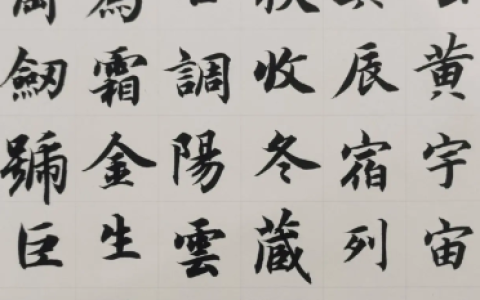 黄宇宙
辰宿列
秋收冬蔵
調陽雲
為霜金生
岡劒號巨